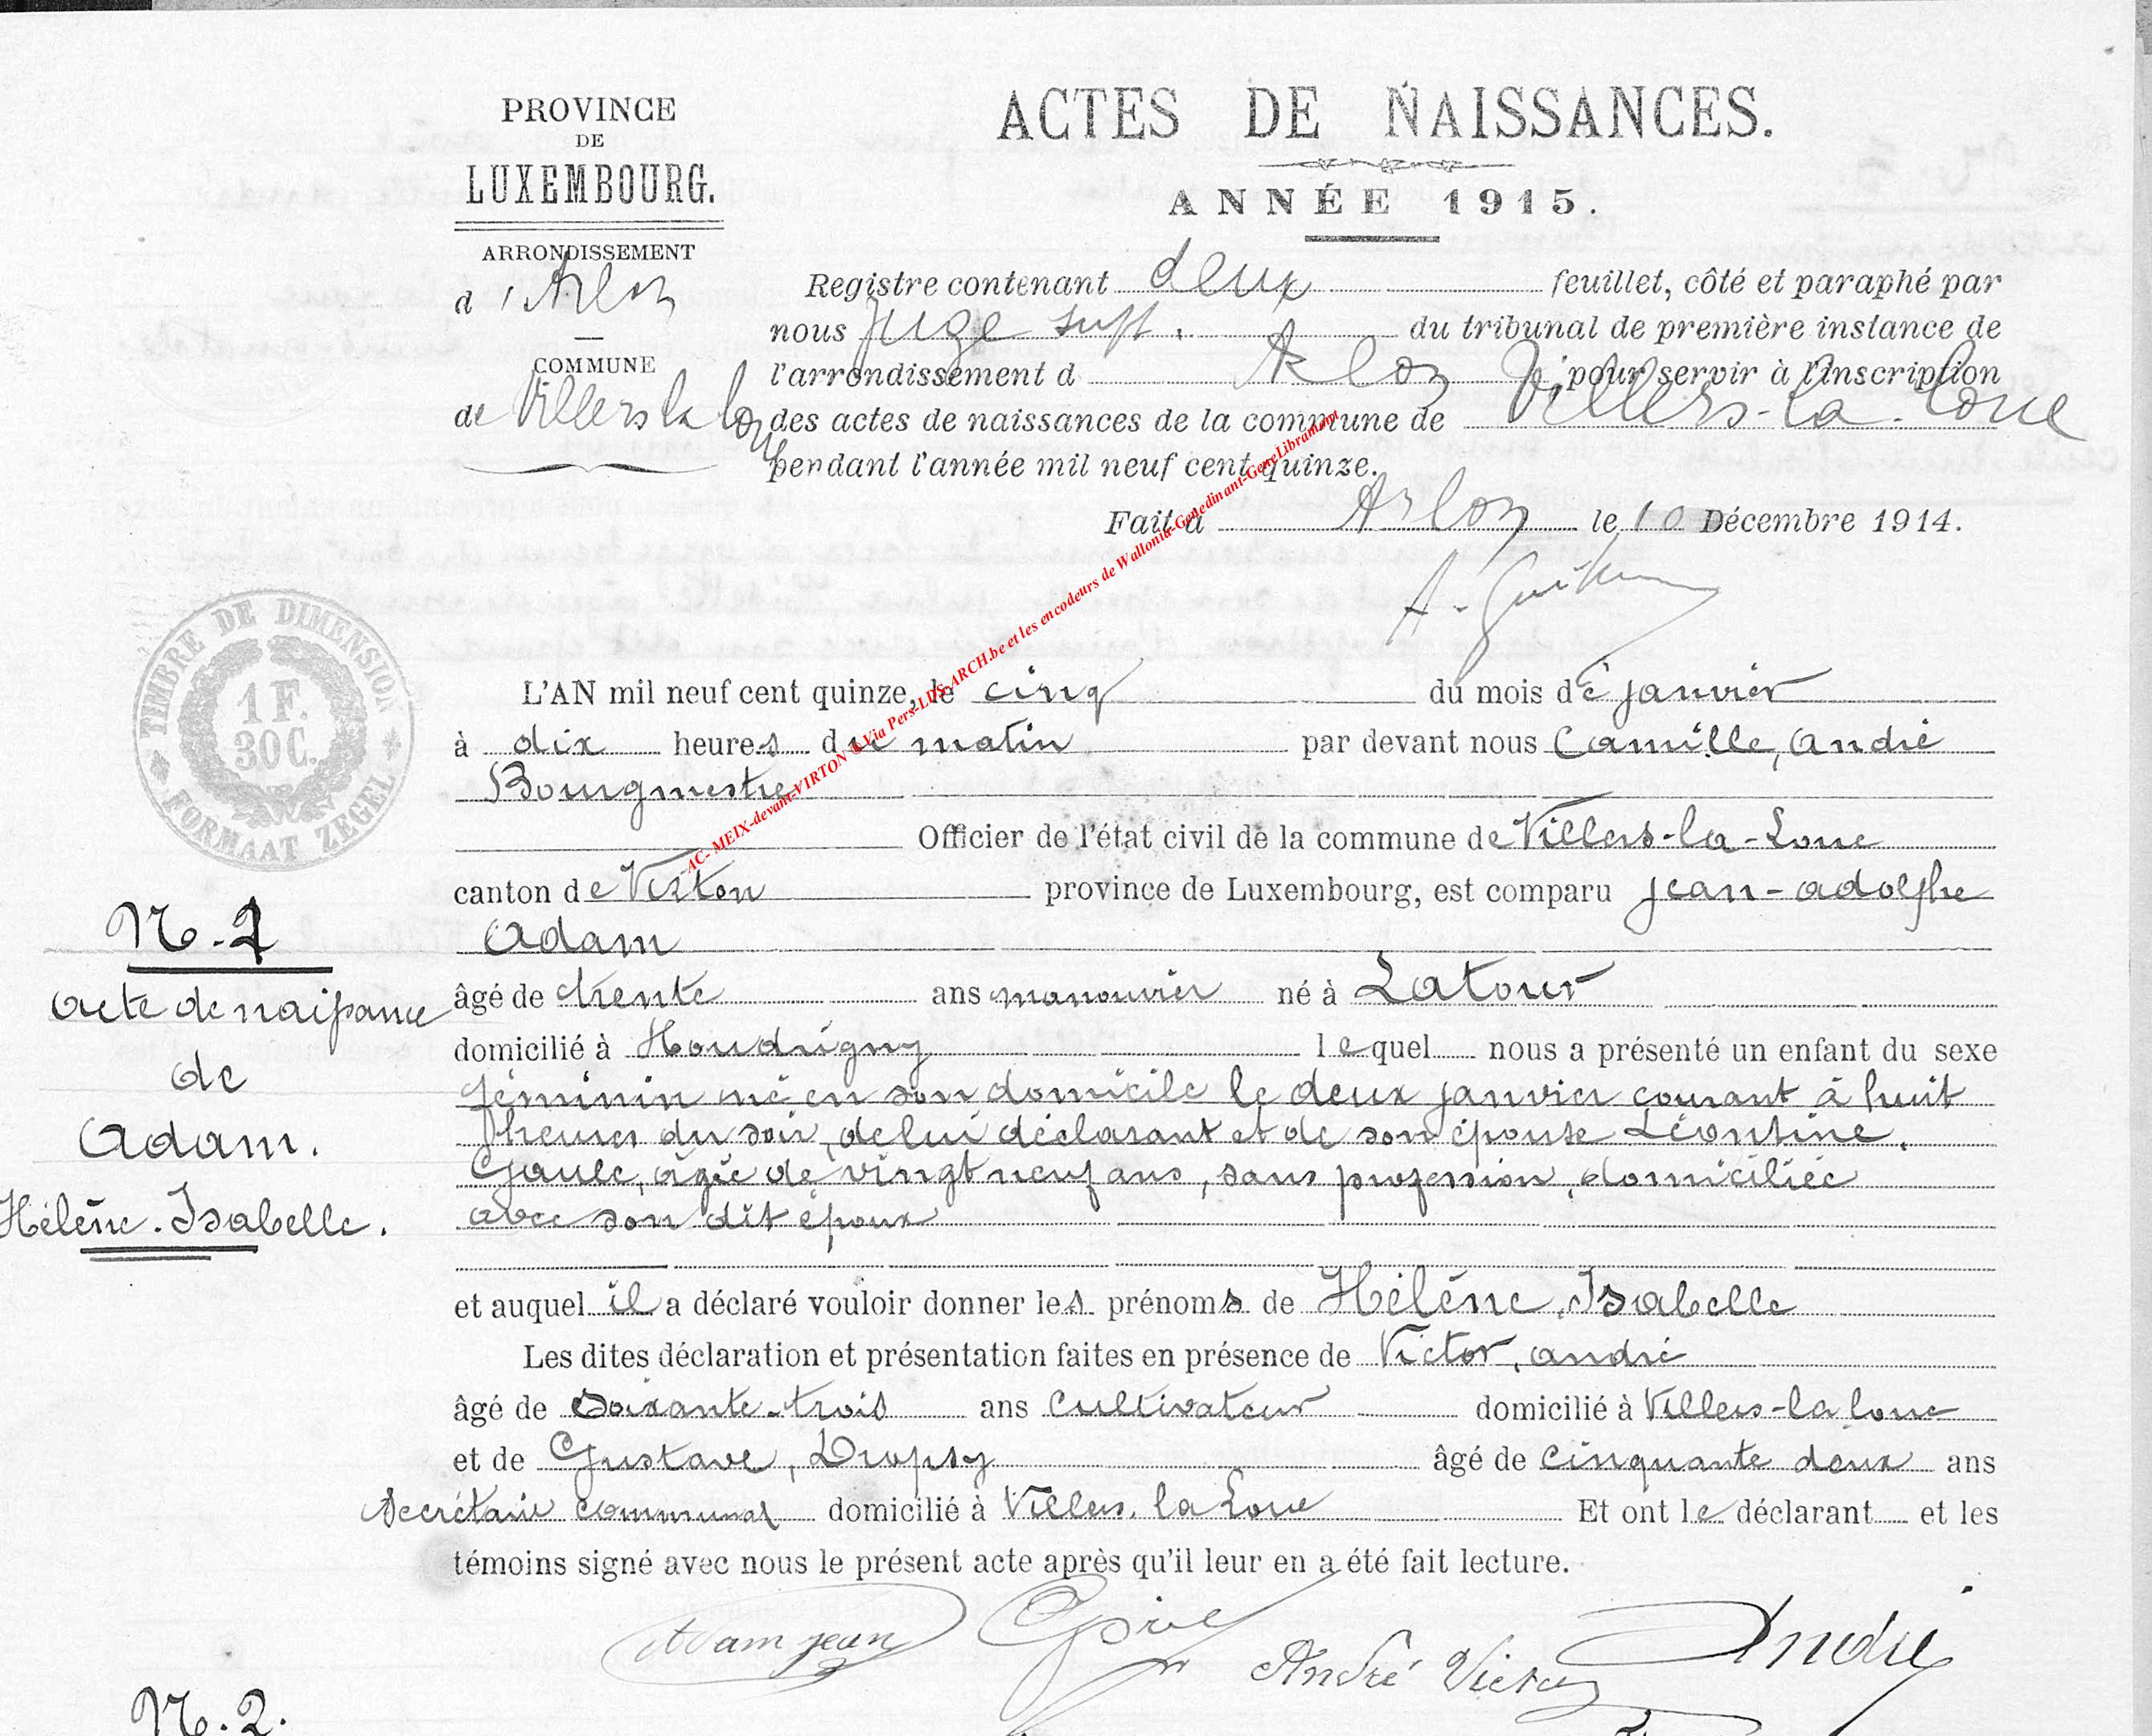 PROVINCE
DE
LUXEMBOURG.
ARRONDISSEMENT
d'Arlon
COMMUNE
de Villers la Loue
ACTES DE NAISSANCES.
ANNÉE 1915.
Registre contenant deux feuillet, côté et paraphé par
nous Juge supt. du tribunal de première instance de
l'arrondissement d Arlon, pour servir à l'inscription
des actes de naissances de la commune de Villers-la-Loue
pendant l'année mil neuf cent quinze.
Fait à Arlon le 10 Décembre 1914.
TIMBRE DE DIMENSION
1 F.
30 C.
FORMAAT ZEGEL
AC- MEIX-devant-VIRTON © Via Pers-LDS-ARCH.be et les encodeurs de Wallonia-Genedinant-GeneLibramont
L'AN mil neuf cent quinze, le cinq du mois de janvier
à dix heures du matin par devant nous Camille, André
Bourgmestre
Officier de l'état civil de la commune de Villers-la-Loue
canton de Virton province de Luxembourg, est comparu Jean-Adolphe
Adam
N°.1
Acte de naissance
de
Adam.
Hélène.Isabelle.
âgé de trente ans manouvrier né à Latour
domicilié à Houdrigny lequel nous a présenté un enfant du sexe
féminin né en son domicile le deux janvier courant à huit
heures du soir, de lui déclarant et de son épouse Léontine,
Goule, âgée de vingt neuf ans, sans profession, domiciliée
avec son dit époux
et auquel il a déclaré vouloir donner les prénoms de Hélène, Isabelle
Les dites déclaration et présentation faites en présence de Victor, André
âgé de soixante-trois ans cultivateur domicilié à Villers-la loue
et de Gustave, Dropsy âgé de cinquante deux ans
secrétaire communal domicilié à Villers, la Loue Et ont le déclarant et les
témoins signé avec nous le présent acte après qu'il leur en a été fait lecture.
Adam jean
André Victor
André
N°.2.